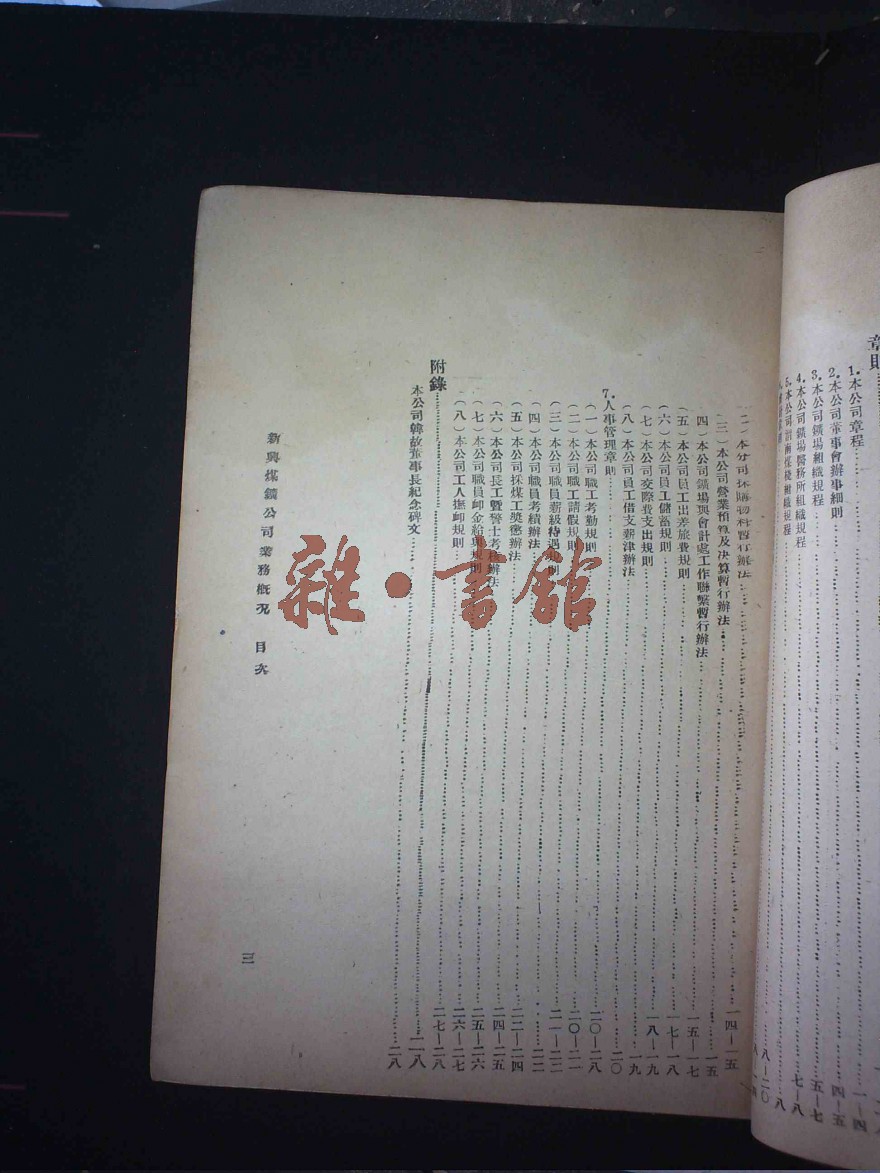 章則
1.本公司章程……一—四
2.本公司董事會辦事細則……四—五
3.本公司鑛場組織規程……五—七
4.本公司鑛場醫務所組織規程……七—八
5.本公司濟南煤棧組織規程……八
八—二〇
(二)本公司採購物料暫行辦法……一四—一五
(三)本公司營業預算及決算暫行辦法……一五
(四)本公司鑛場與會計處工作聯繫暫行辦法……一五—一七
(五)本公司員工出差旅費規則……一七—一八
(六)本公司員工儲蓄規則……一八—一九
(七)本公司交際費支出規則……一九
(八)本公司員工借支薪津辦法……二〇
7.人事管理章則……二〇—二八
(一)本公司職工考勤規則……二〇—二一
(二)本公司職工請假規則……二一—二二
(三)本公司職員薪級待遇規則……二二
(四)本公司職員考績辦法……二二—二四
(五)本公司採煤工獎懲辦法……二四—二五
(六)本公司長工暨警士考核辦法……二五—二六
(七)本公司職員卹金給與規則……二六—二七
(八)本公司工人撫卹規則……二七—二八
附錄……二八
本公司韓故董事長紀念碑文……二八
新興煤鑛公司業務概況 目次
三
雜·書館